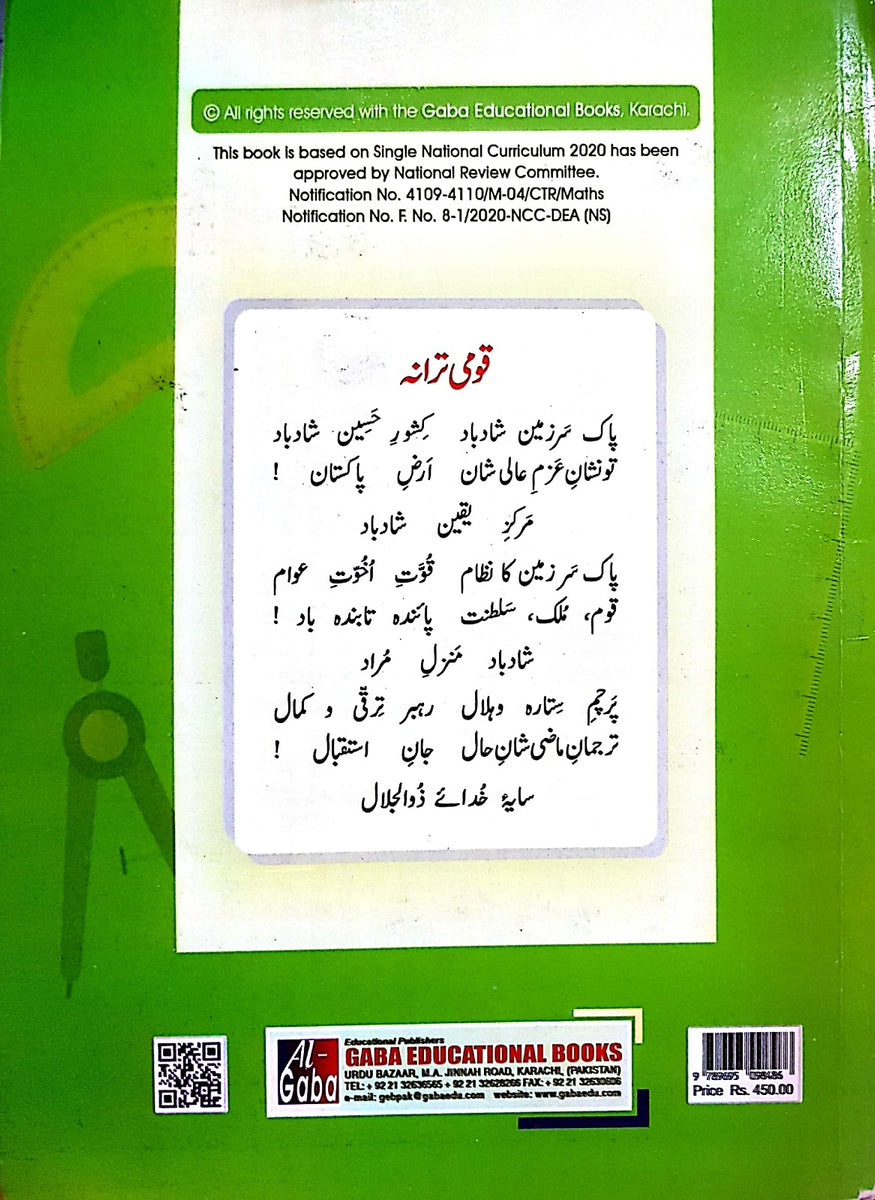 © All rights reserved with the Gaba Educational Books, Karachi.
This book is based on Single National Curriculum 2020 has been
approved by National Review Committee.
Notification No. 4109-4110/M-04/CTR/Maths
Notification No. F. No. 8-1/2020-NCC-DEA (NS)
قومی ترانہ
پاک سَرزمین شادباد کِشورِ حَسِین شادباد
تونشانِ عَزمِ عالی شان اَرضِ پاکستان !
مَرکزِ یقین شادباد
پاک سَرزمین کا نظام قُوَّتِ اُخُوّتِ عوام
قوم، مُلک، سَلطنت پائندہ تابندہ باد !
شادباد مَنزلِ مُراد
پَرچمِ سِتارہ وہلال رہبرِ ترقّی و کمال
ترجمانِ ماضی شانِ حال جانِ استقبال !
سایۂ خُدائے ذُوالجلال
Al-Gaba
Educational Publishers
GABA EDUCATIONAL BOOKS
URDU BAZAAR, M.A. JINNAH ROAD, KARACHI, (PAKISTAN)
TEL: + 92 21 32636565 + 92 21 32628266 FAX: + 92 21 32630606
e-mail: gebpak@gabaedu.com website: www.gabaedu.com
Price Rs. 450.00